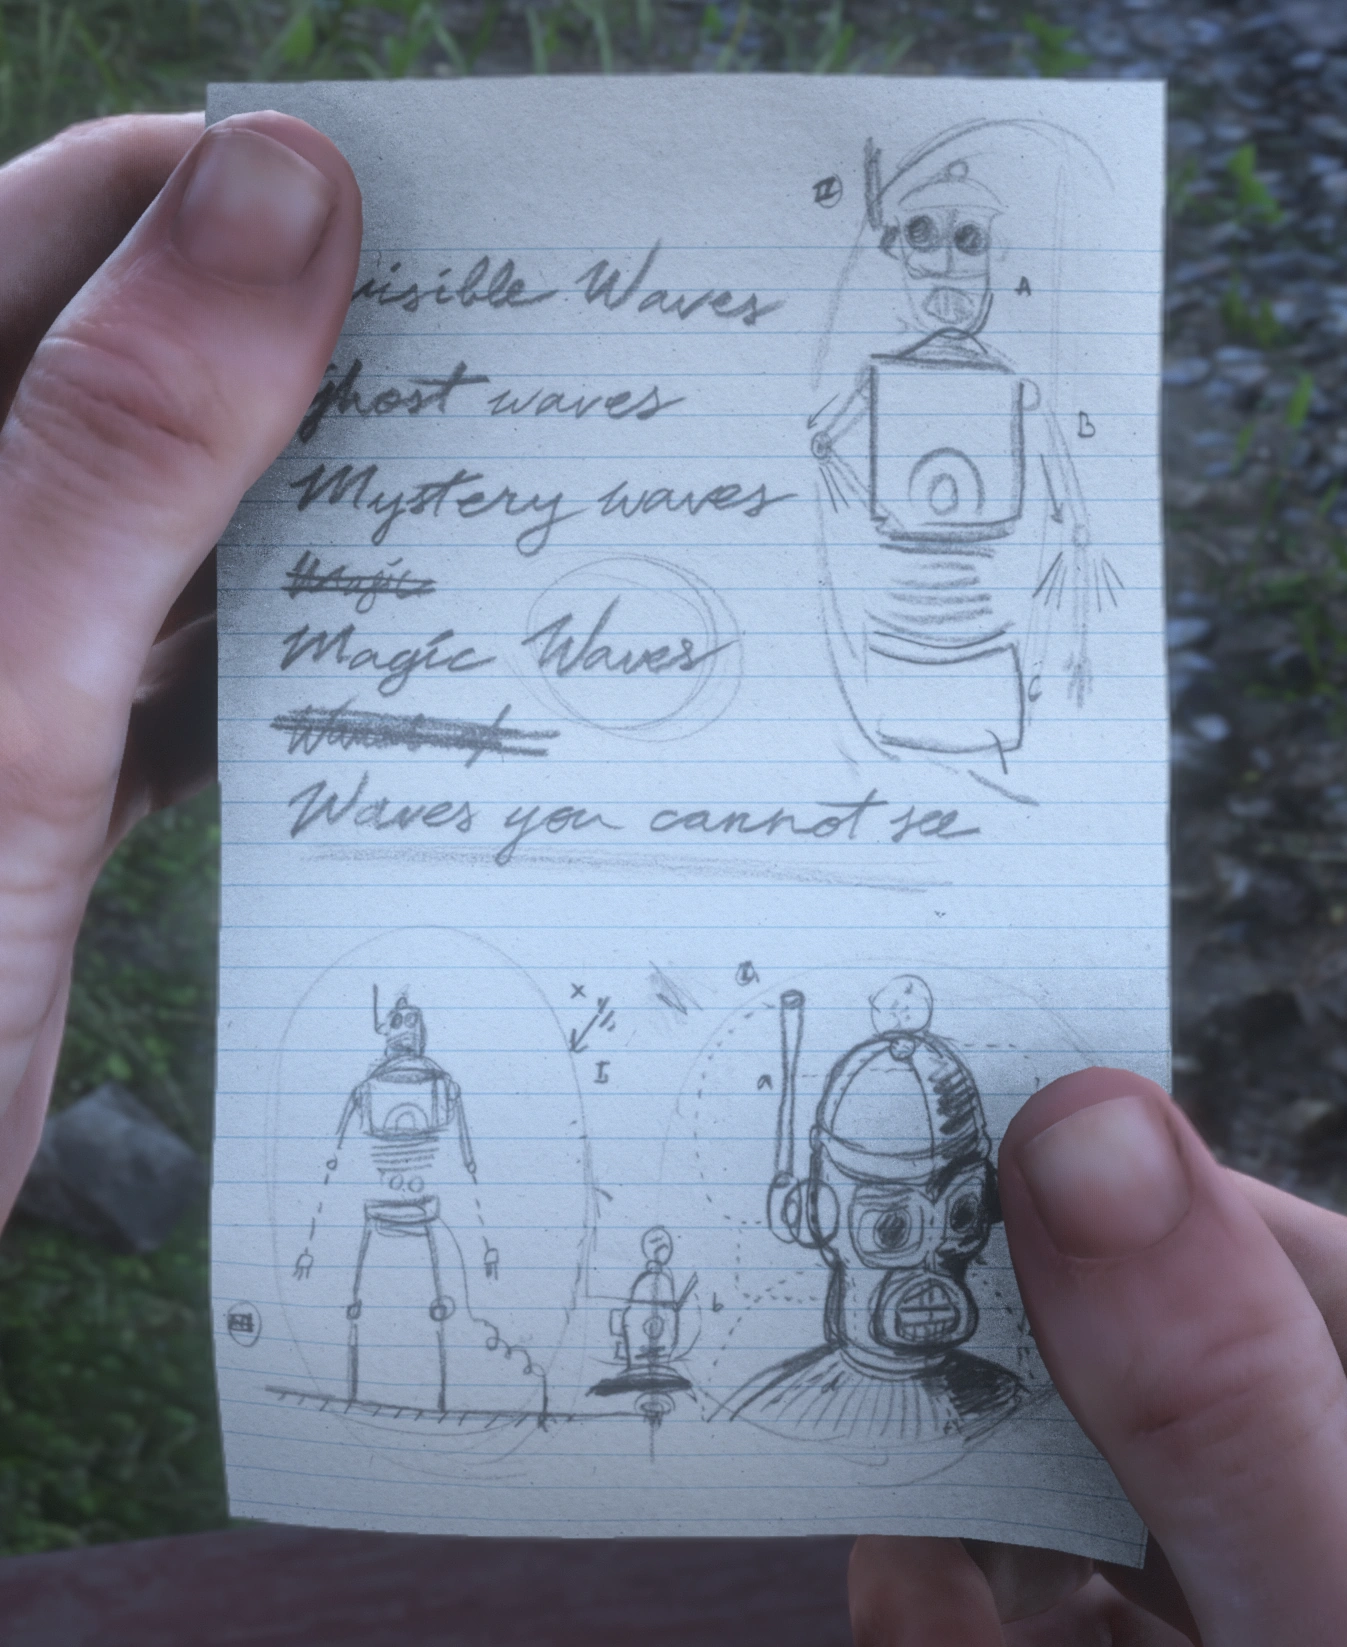 visible Waves
Ghost waves
Mystery waves
Magic
Magic Waves
Waves you cannot see
II
A
B
C
X
I
a
b